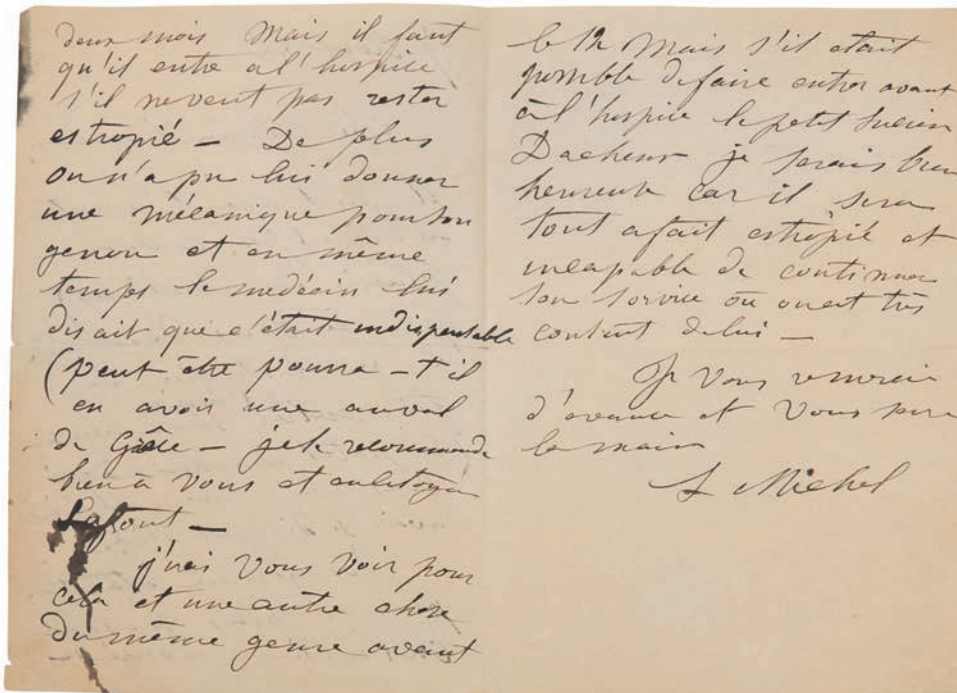 deux mois Mais il faut
qu'il entre a l'hospice
s'il ne veut pas rester
estropié — De plus
on n'a pu lui donner
une mécanique pour son
genou et en même
temps le médecin lui
disait que c'était indispensable
(peut être pourra-t'il
en avoir une au val
de Grâce — je le recommande
bien à vous et au citoyen
Lafont —
j'irai vous voir pour
cela et une autre chose
du même genre avant
le 12 Mais s'il était
possible de faire entrer avant
à l'hospice le petit Lucien
je serais bien
heureuse car il sera
tout a fait estropié et
incapable de continuer
son service où on est très
content de lui —
Je vous remercie
d'avance et vous serre
la main
L Michel